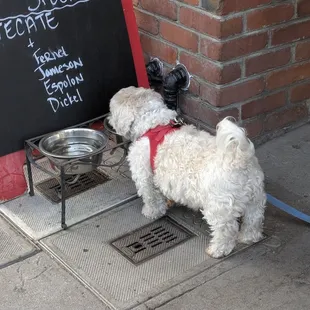 TECATE
+
Fernet
Jameson
Espolon
Dickel